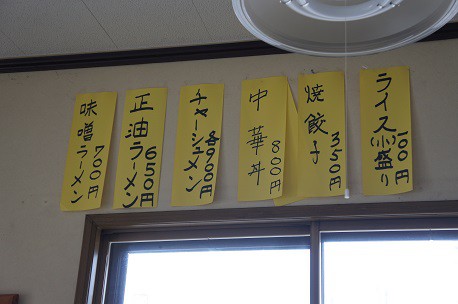 ライス小盛り 100円
焼餃子 350円
中華丼 800円
チャーシューメン 各900円
正油ラーメン 650円
味噌ラーメン 700円